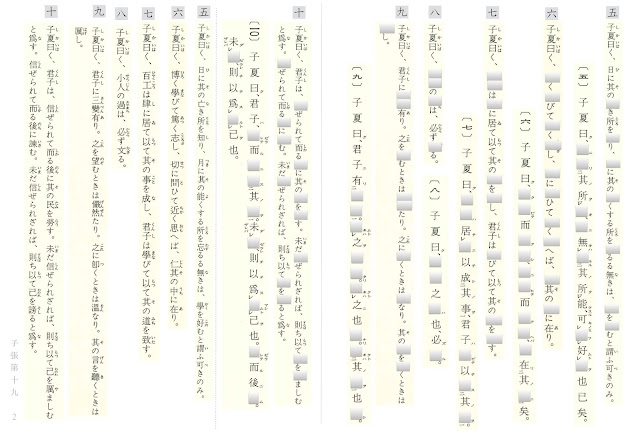 五 子夏曰く、日に其の き所を り、月に其の くする所を るる無きは、 を むと謂ふ可きのみ。
〔五〕子夏曰、 其所 、 無 其所能、可 好 也已矣。
六 子夏曰く、 く びて く し、 に ひて く へば、 其の に在り。
〔六〕子夏曰、 而 、 而 、 在其 矣。
七 子夏曰く、 は に居て以て其の を し、君子は びて以て其の を す。
〔七〕子夏曰、 居 以成其事、君子 以 其 。
八 子夏曰く、 の は、必ず る。 〔八〕子夏曰、 之 也、必 。
九 子夏曰く、君子に 有り。之を むときは たり。之に くときは なり。其の を くときは
し。
〔九〕子夏曰、君子有 。 之 、 之也 、 其 也 。
十 子夏曰く、君子は、 ぜられて而る に其の を す。未だ ぜられざれば、則ち以て を ましむ
と為す。 ぜられて而る に む。未だ ぜられざれば、則ち以て を ると為す。
〔一〇〕子夏曰、君子、 而 其 。未 、則以爲 己也。 而後 。
未 、則以爲 己也。
五 子夏曰く、日に其の亡き所を知り、月に其の能くする所を忘るる無きは、學を好むと謂ふ可きのみ。
六 子夏曰く、博く學びて篤く志し、切に問ひて近く思へば、仁其の中に在り。
七 子夏曰く、百工は肆に居て以て其の事を成し、君子は學びて以て其の道を致す。
八 子夏曰く、小人の過は、必ず文る。
九 子夏曰く、君子に三變有り。之を望むときは儼然たり。之に卽くときは溫なり。其の言を聽くときは
厲し。
十 子夏曰く、君子は、信ぜられて而る後に其の民を勞す。未だ信ぜられざれば、則ち以て己を厲ましむ
と爲す。信ぜられて而る後に諫む。未だ信ぜられざれば、則ち以て己を謗ると爲す。
子張第十九 2